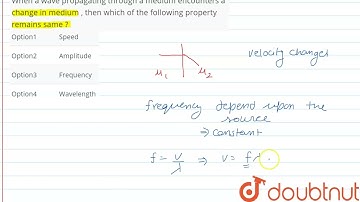 When a wave propagating through a medium encounters a
change in medium , then which of the following property
remains same ?
Option1 Speed
Option2 Amplitude
Option3 Frequency
Option4 Wavelength
μ₁ μ₂
velocity changes
frequency depend upon the
source
⇒ constant
f = v/λ ⇒ v = fλ
doubtnut